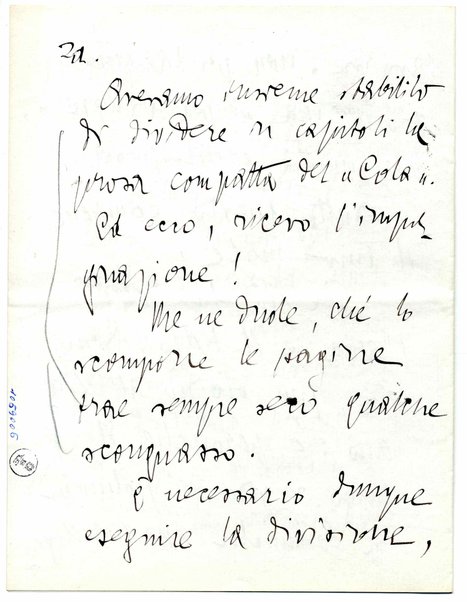 Avevamo insieme stabilito
di dividere in capitoli la
prosa compatta del "Cola".
Ed ecco, ricevo l'impa-
ginazione!
Me ne duole, ché lo
scomporre le pagine
trae sempre seco qualche
sconquasso.
È necessario dunque
eseguire la divisione,